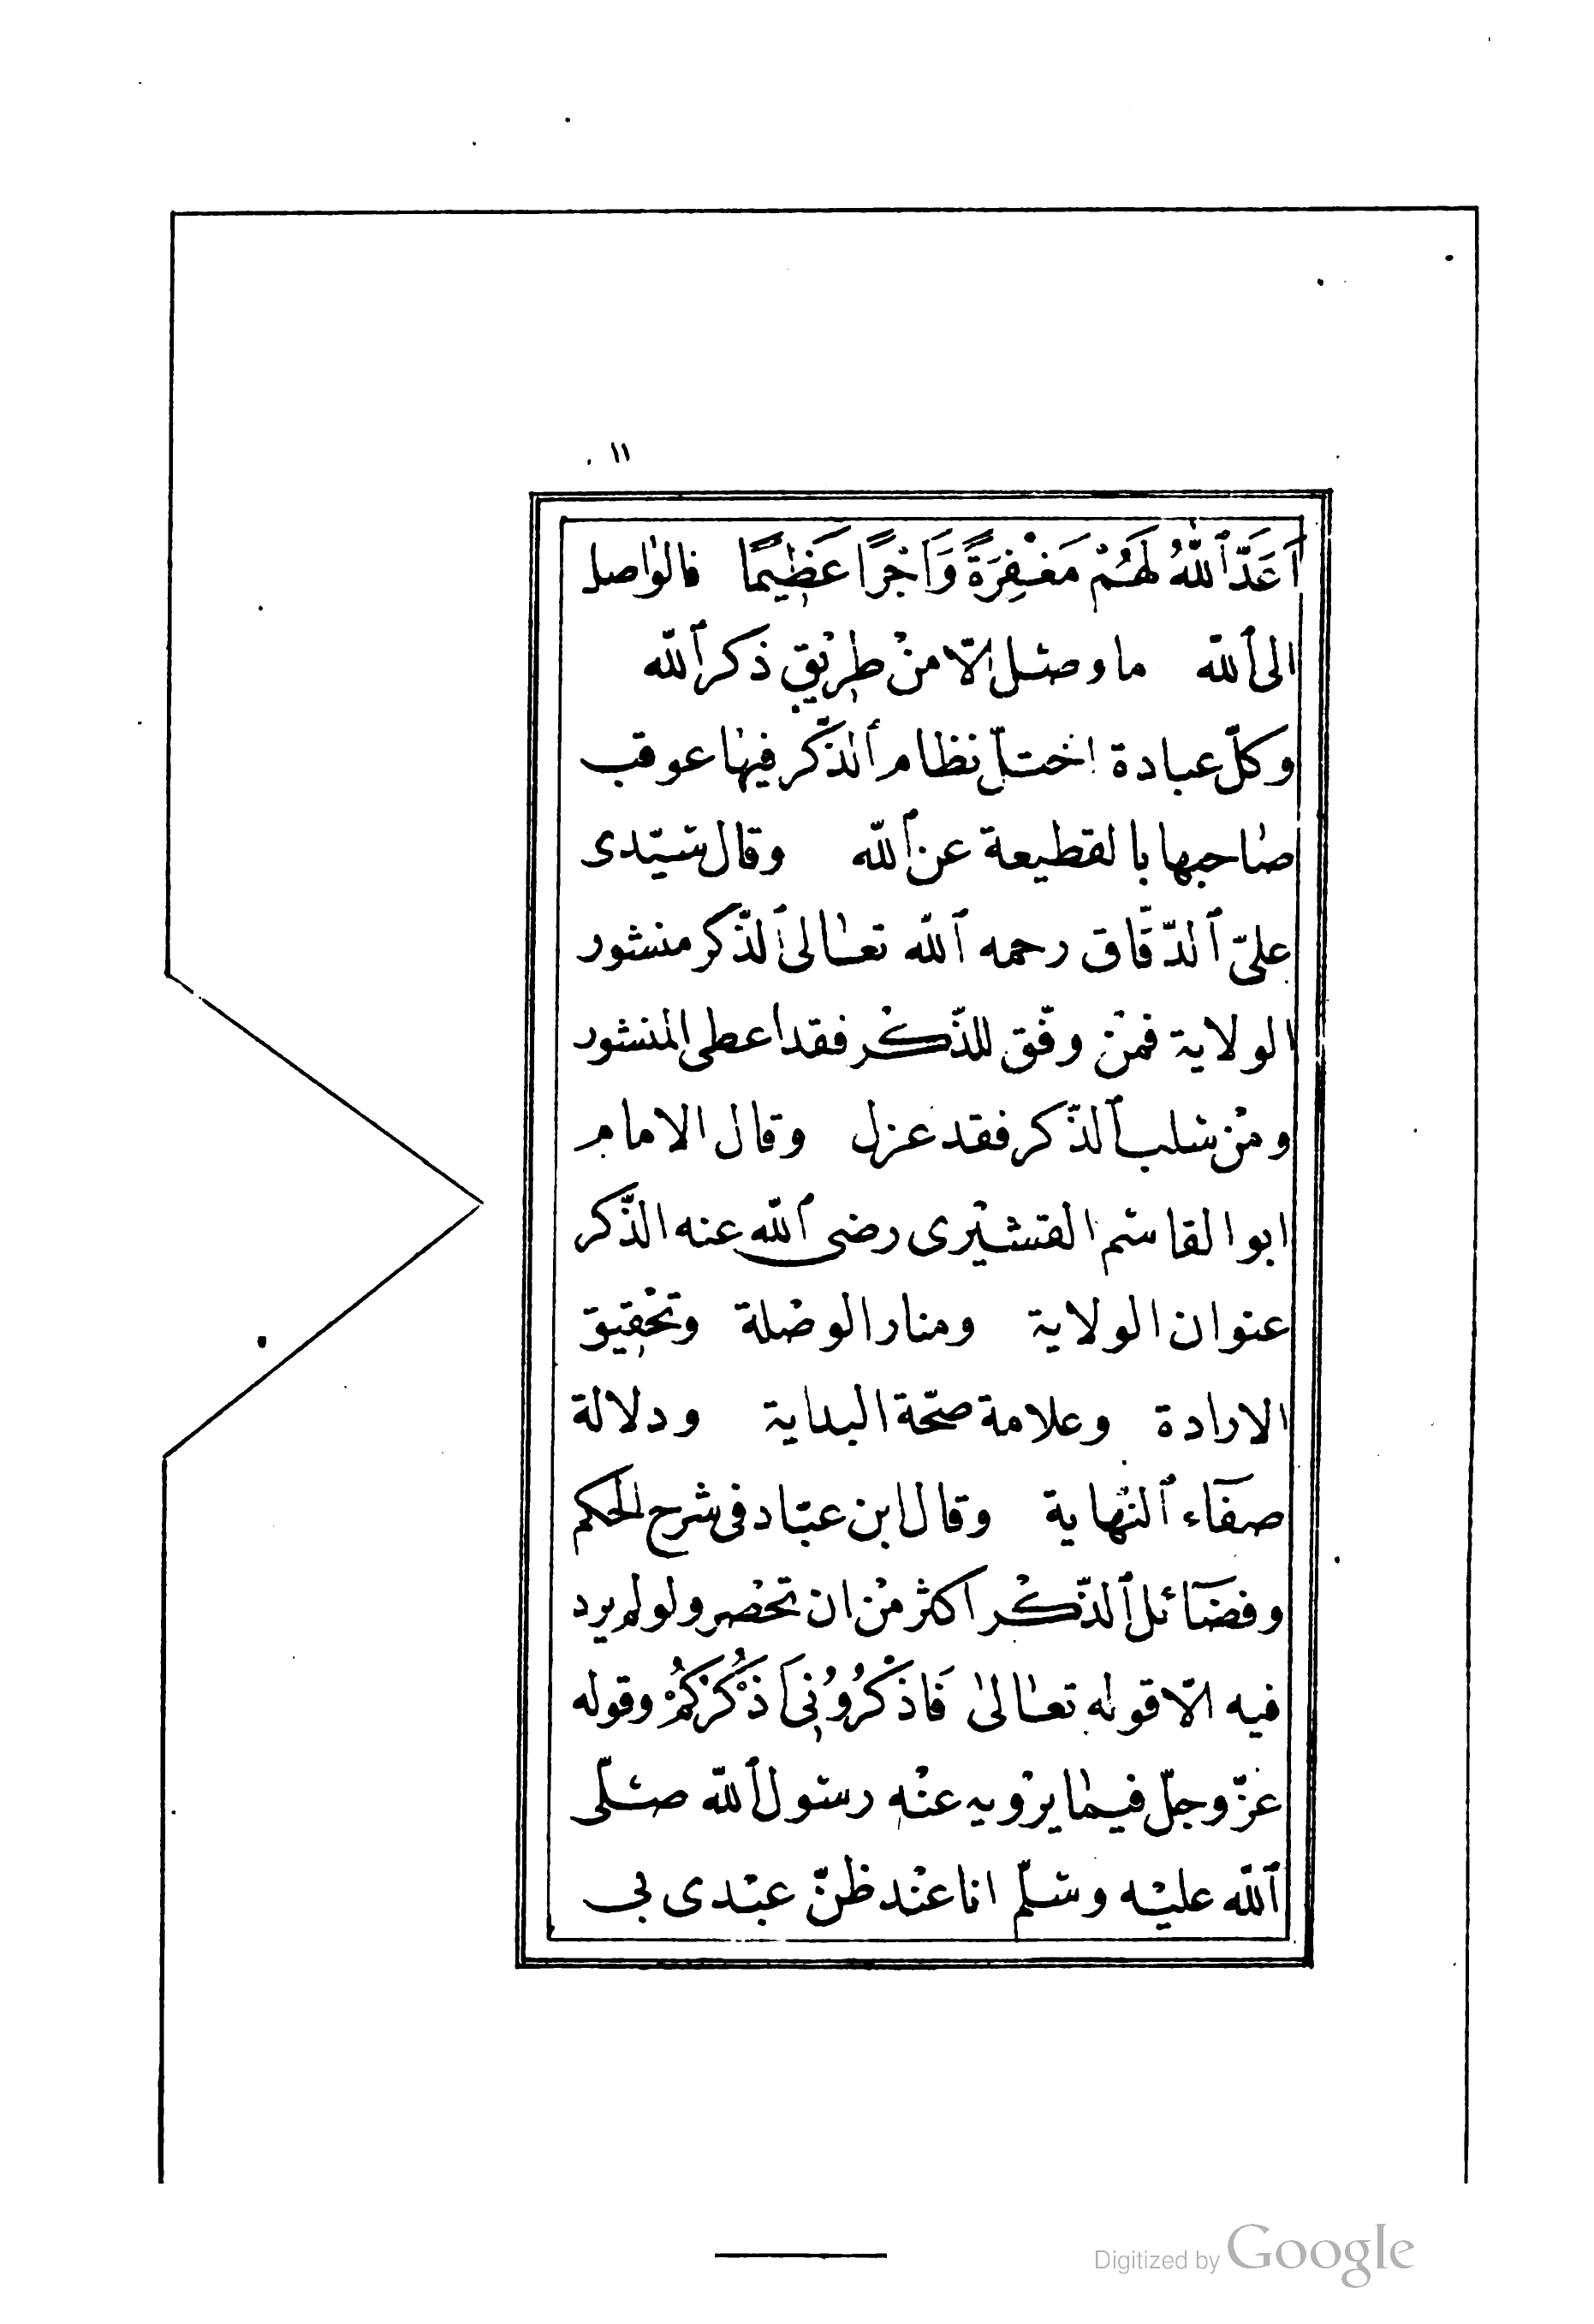 ١١
اَعَدَّ ٱللّٰهُ لَهُمْ مَغْفِرَةً وَاَجْرًا عَظِيمًا فالواصل
الى ٱللّه ما وصل الّا من طريق ذكر ٱللّه
وكلّ عبادة اختلّ نظام ٱلذّكر فيها عوقب
صاحبها بالقطيعة عن ٱللّه وقال سيّدى
علىّ ٱلدّقّاق رحمه ٱللّه تعالى ٱلذّكر منشور
الولاية فمن وفّق للذّكر فقد اعطى المنشور
ومن سلب ٱلذّكر فقد عزل وقال الامام
ابو القاسم القشيرى رضى ٱللّه عنه الذّكر
عنوان الولاية ومنار الوصلة وتحقيق
الارادة وعلامة صحّة البداية ودلالة
صفآء ٱلنّهاية وقال ابن عبّاد فى شرح الحكم
وفضآئل ٱلذّكر اكثر من ان تحصر ولو لم يرد
فيه الّا قوله تعالىٰ فَاذْكُرُوْنِىٓ اَذْكُرْكُمْ وقوله
عزّ وجلّ فيما يرويه عنه رسول ٱللّه صلّى
ٱللّه عليه وسلّم انا عند ظنّ عبدى بى
Digitized by Google